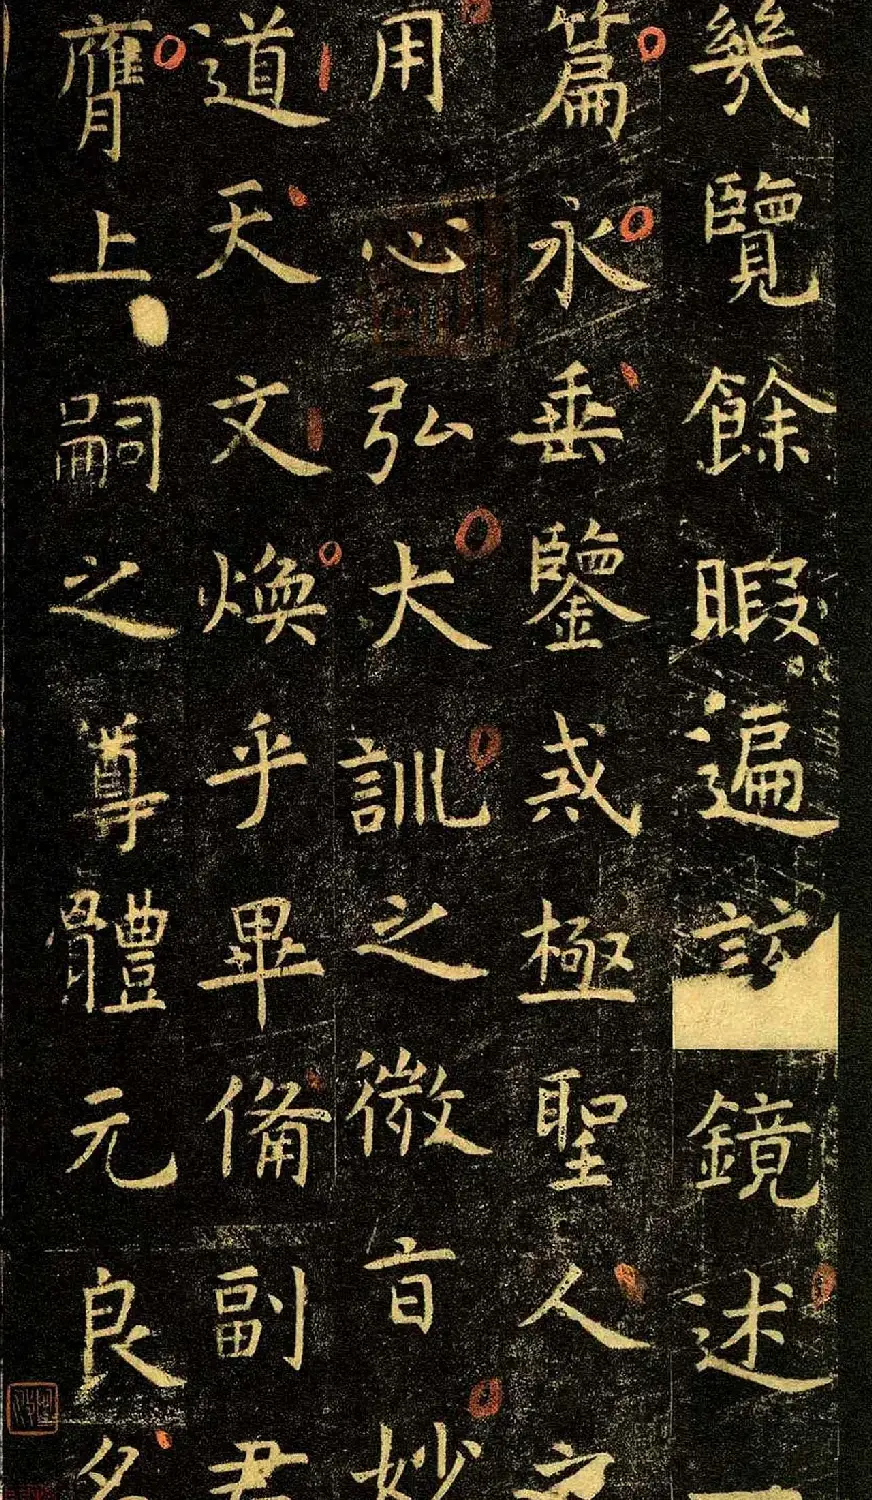 幾覽餘暇遍鏡述
篇永垂鑒戒極聖人之
用心弘大訓之微旨妙
道天文煥乎畢備副君
膺上嗣之尊體元良